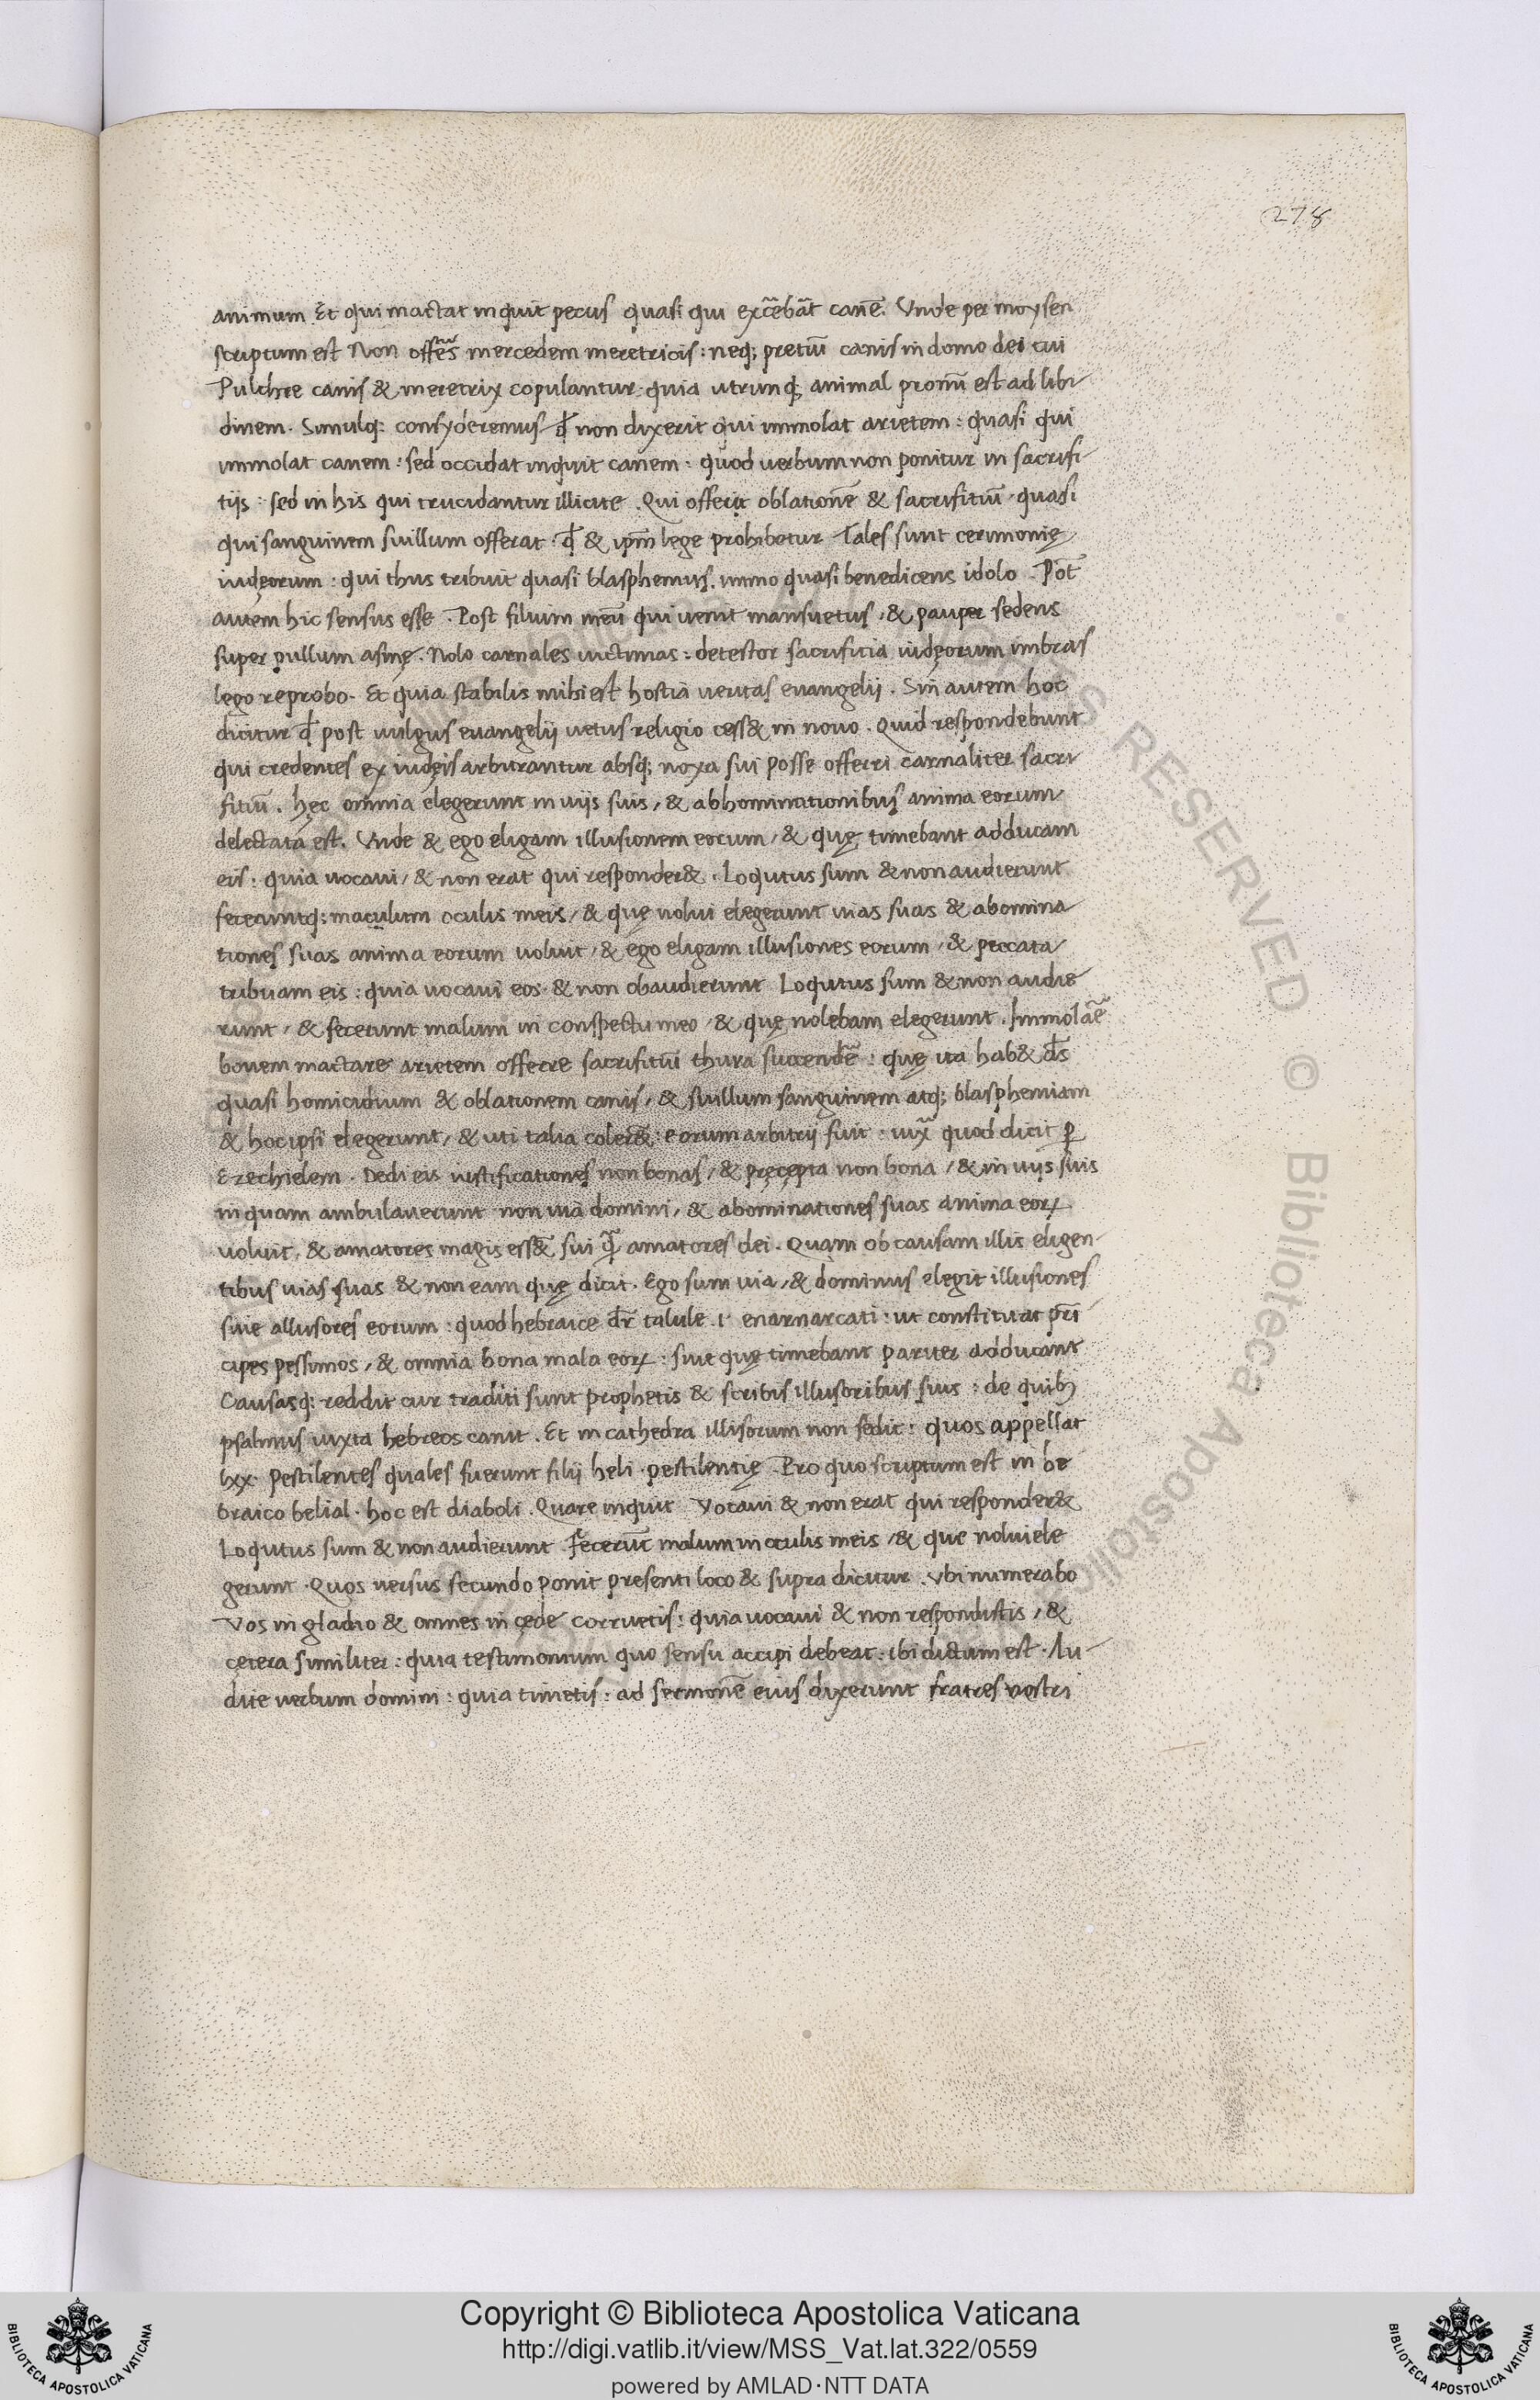 278
animum. Et qui mactat inquit pecus quasi qui excẽbãt canẽ. Vnde per moysen
scriptum est Non offẽs mercedem meretricis: neq; pretiũ canis in domo dei tui
Pulchre canis & meretrix copulantur. quia utrunq; animal pronũ est ad libi-
dinem. Simulq; consyderemus qđ non dixerit qui immolat arietem: quasi qui
immolat canem: sed occidat inquit canem: quod uerbum non ponitur in sacrifi-
tijs: sed in his qui trucidantur illicite. Qui offerit oblationẽ & sacrifitiũ, quasi
qui sanguinem suillum offerat. qđ & ip̃m lege prohibetur Tales sunt cerimonię
iudęorum: qui thus tribuit quasi blasphemus. immo quasi benedicens idolo. Põt
autem hic sensus esse. Post filium meũ qui uenit mansuetus, & pauper sedens
super pullum asinę. Nolo carnales uictimas: detestor sacrificia iudęorum umbras
lego reprobo. Et quia stabilis mihi est hostia ueritas euangelij. Sin autem hoc
dicitur qđ post uulgus euangelij uetus religio cess& in nouo. Quid respondebunt
qui credentes ex iudęis arbitrantur absq; noxa sui posse offerri carnaliter sacri
fitiũ. Hęc omnia elegerunt in uijs suis, & abhominationibus anima eorum
delectata est. Vnde & ego eligam illusionem eorum, & quę timebant adducam
eis: quia uocaui, & non erat qui responder&. Loqutus sum & non audierunt
feceruntq; maculum oculis meis, & quę nolui elegerunt uias suas & abomina
tiones suas anima eorum uoluit, & ego eligam illusiones eorum, & peccata
tribuam eis: quia uocaui eos & non obaudierunt Loqutus sum & non audie
runt, & fecerunt malum in conspectu meo, & quę nolebam elegerunt. Immolãe
bouem mactare arietem offerre sacrifitiũ thura succendẽ: quę ita hab& ds̃
quasi homicidium & oblationem canis, & suillum sanguinem atq; blasphemiam
& hoc ipsi elegerunt, & uti talia coler&: eorum arbitrij fuit: iux̃ quod dicit ꝑ
Ezechielem. Dedi eis iustificationes non bonas, & pręcepta non bona, & in uijs suis
in quam ambulauerunt non uia domini, & abominationes suas anima eoꝝ
uoluit, & amatores magis ess& sui q̃ amatores dei. Quam ob causam illis eligen-
tibus uias suas & non eam quę dicit. Ego sum uia, & dominus elegit illusiones
siue allusores eorum: quod hebraice dr̃ talule .i. enarnarcati: ut constituat pri
cipes pessimos, & omnia bona mala eoꝝ: siue quę timebant pariter adducant
Causasq; reddit cur traditi sunt prophetis & scribis illusoribus suis: de quibꝫ
psalmus iuxta hebreos canit. Et in cathedra illisorum non sedit: quos appellat
lxx. Pestilentes quales fuerunt filij heli. pestilentię. Pro quo scriptum est in he
braico belial. hoc est diaboli. Quare inquit Vocaui & non erat qui responder&
Loqutus sum & non audierunt. Fecerũt malum in oculis meis, & que nolui ele
gerunt. Quos uersus secundo ponit presenti loco & supra dicitur. Vbi numerabo
Vos in gladio & omnes in cęde corruetis: quia uocaui & non respondistis, &
cętera similiter: quia testimonium quo sensu accipi debeat: ibi dictum est. Au-
dite uerbum domini: quia timetis: ad sermonẽ eius dixerunt fratres uostri
Copyright © Biblioteca Apostolica Vaticana
http://digi.vatlib.it/view/MSS_Vat.lat.322/0559
powered by AMLAD·NTT DATA